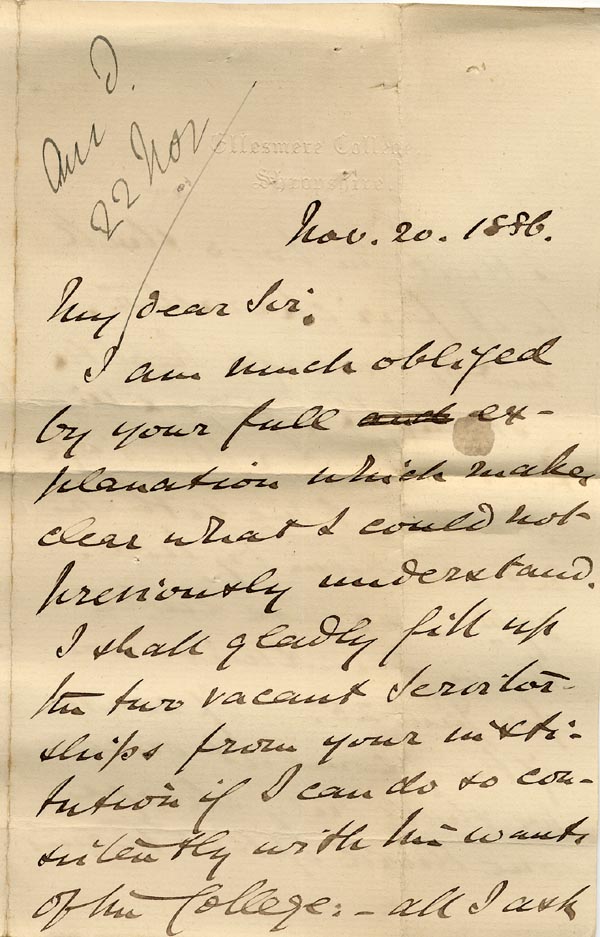 Ansd.
22 Nov
Ellesmere College,
Shropshire.
Nov. 20. 1886.
My dear Sir,
I am much obliged
by your full and ex-
planation which makes
clear what I could not
previously understand.
I shall gladly fill up
the two vacant Servitor-
ships from your insti-
tution if I can do so con-
sistently with the wants
of the College: - all I ask